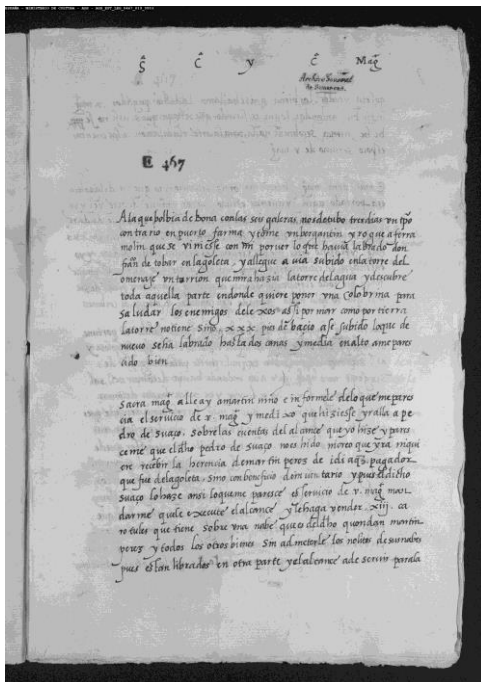 S C y C Mag
Archivo General
de Simancas
E 467
A la que bolbia de Bona con las seis galeras, nos detubo tres dias vn tpo
contrario en puerto farina y tome vn bergantin y rogue a ferra
molin que se viniesse con mi por ver lo que hauia labrado don
fran de tobar en la goleta, y allegue a via subido en la torre del
omenaje vn torrion que mira hazia la torre del agua y descubre
toda aquella parte en donde quiere poner vna colobrina para
saludar los enemigos de lexos assi por mar como por tierra
la torre no tiene sino xxx pies de bacio a se subido lo que de
nueuo se ha labrado hasta dos canas y media en alto a me pares
cido bien
sacra mag alle ay a martin niño e informele de lo que me pares
cia el seruicio de v. mag y medixo que hiziesse yr alla a pe
dro de suaço, sobre las cuentas del alcance que yo hize y pares
ceme que el dho pedro de suaço no es hido ni creo que yra ni que
en recebir la herencia de martin peres de idiaq pagador
que fue de la goleta, sino con beneficio de inuentario y pues el dicho
suaço lo haze ansi lo que me paresce es seruicio de v. mag man
darme que le execute el alcance y le haga vender xiij ca
ratules que tiene sobre vna nabe que es del dho quondan martin
peres y todos los otros bienes sin admeterle los nolitos de su nabe
pues estan librados en otra parte y el alcance a de seruir para la